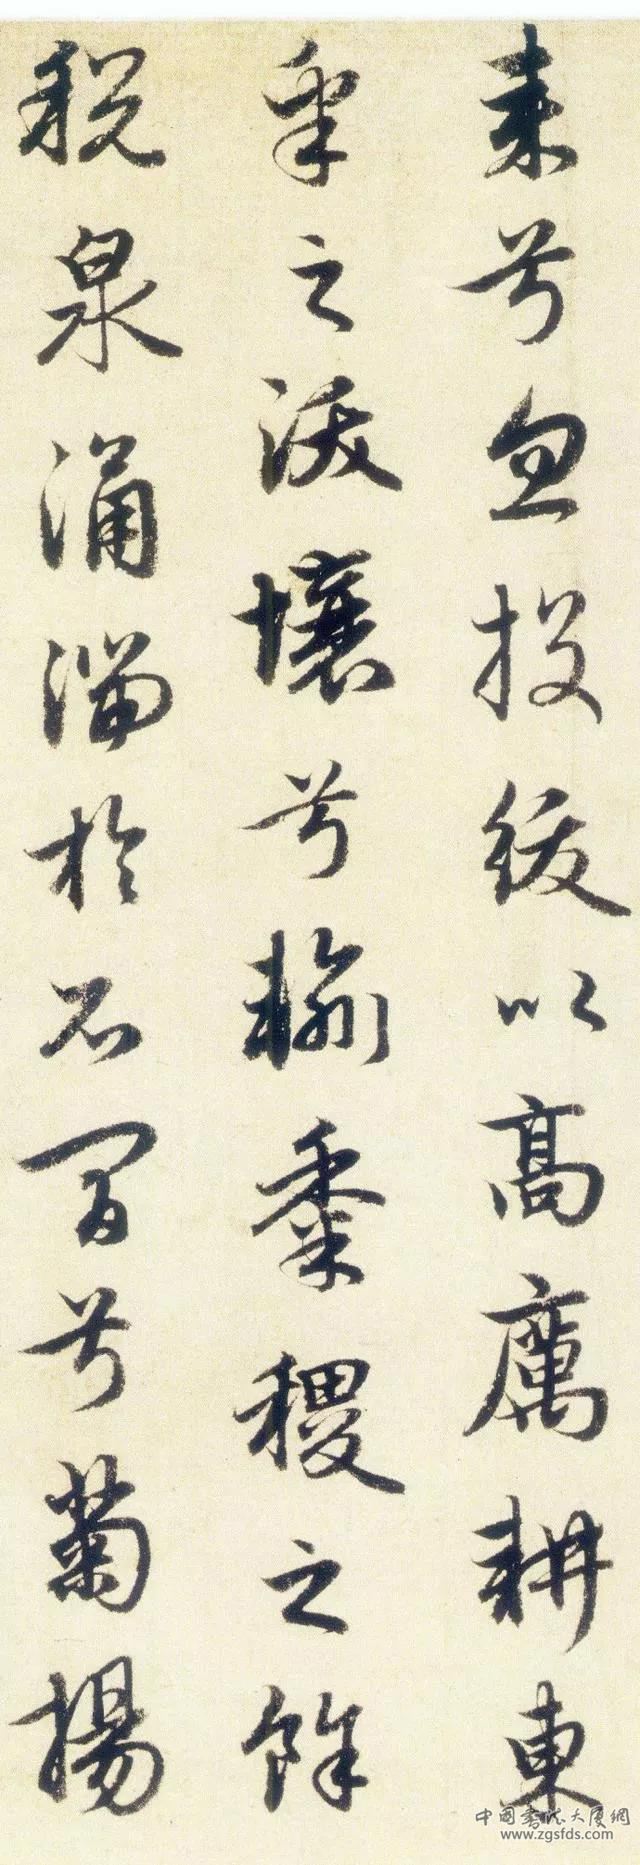 來兮忽投紱以高厲耕東
皋之沃壤兮輸黍稷之餘
稅泉涌湍於石間兮菊揚
中國書法大廈網
www.zgsfds.com